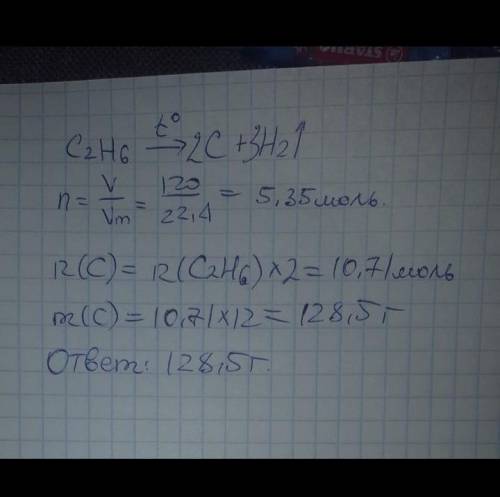 STABILO
C2H6 t° → 2C + 3H2↑
n = V/Vm = 120/22,4 = 5,35 моль.
n(C) = n(C2H6) × 2 = 10,71 моль
m(C) = 10,71 × 12 = 128,5 г
Ответ: 128,5 г.